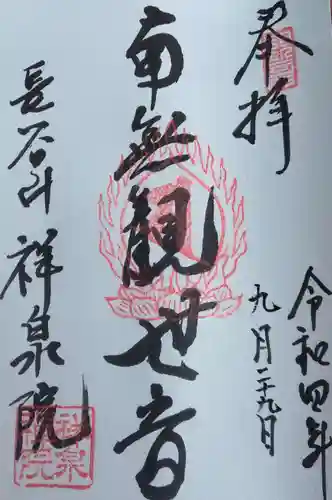 奉拝
令和四年
九月二十九日
南無観世音
長谷山 祥泉院
祥泉院